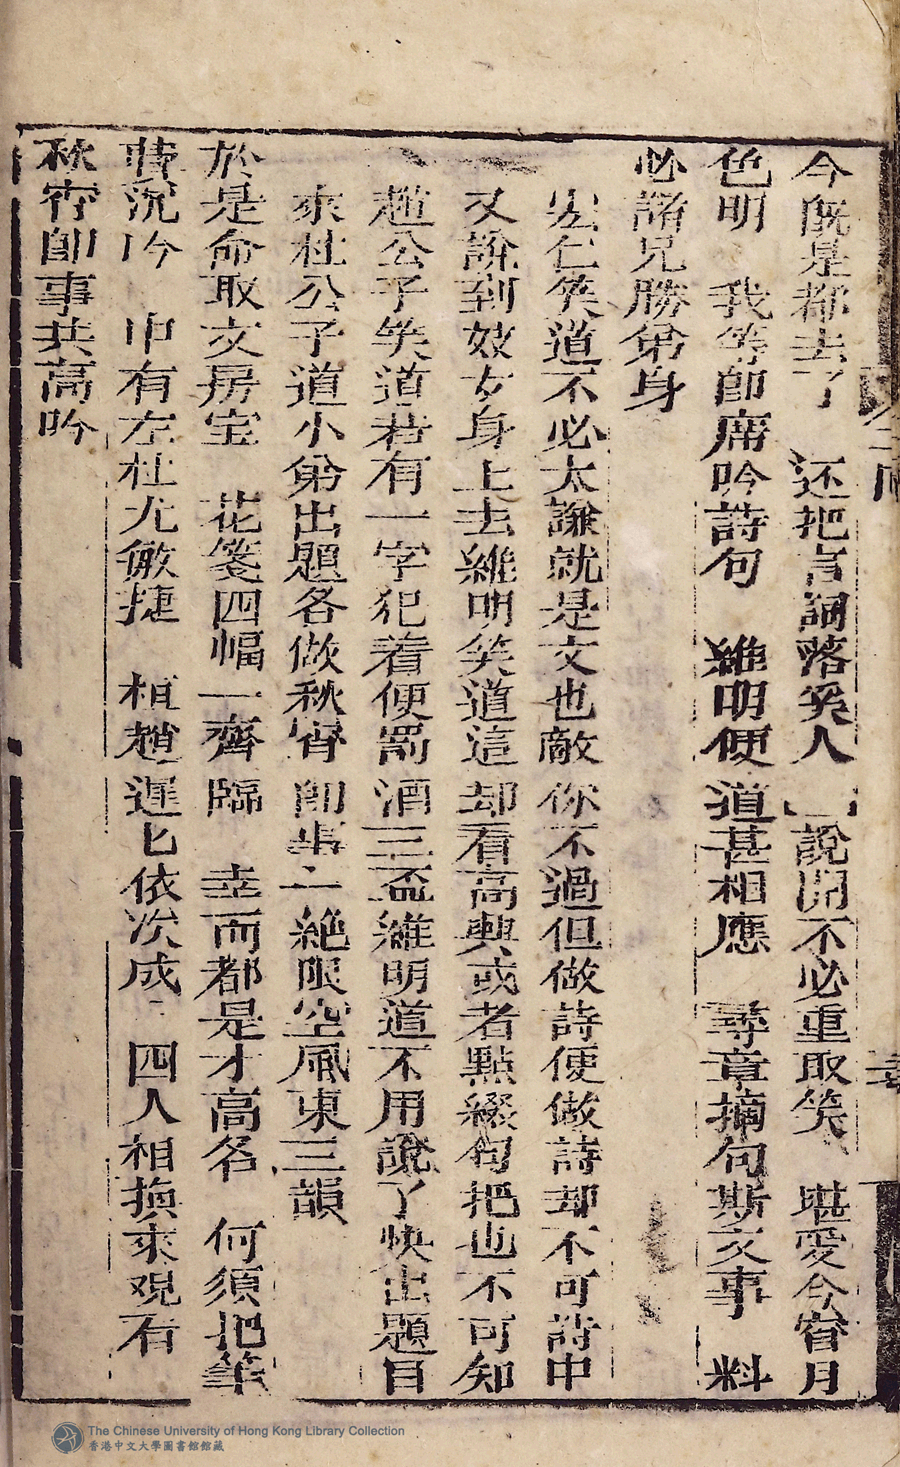 今既是都去了　还把言詞落笑人　說開不必重取笑　堪愛今宵月
色明　我等即席吟詩句　維明便道甚相應　尋章摘句斯文事　料
必諸兄勝弟身
宏仁笑道不必太謙就是文也敵你不過但做詩便做詩却不可詩中
又說到妓女身上去維明笑道這却看高興或者點綴句把也不可知
趙公子笑道若有一字犯着便罰酒三盃維明道不用說了快出題目
來杜公子道小弟出題各做秋宵即事二絶限空風東三韻
於是命取文房宝　花箋四幅一齊臨　幸而都是才高名　何須把筆
費沉吟　中有左杜尤敏捷　桓趙遲匕依次成　四人相換來观看
秋宵即事共高吟
The Chinese University of Hong Kong Library Collection
香港中文大學圖書館館藏